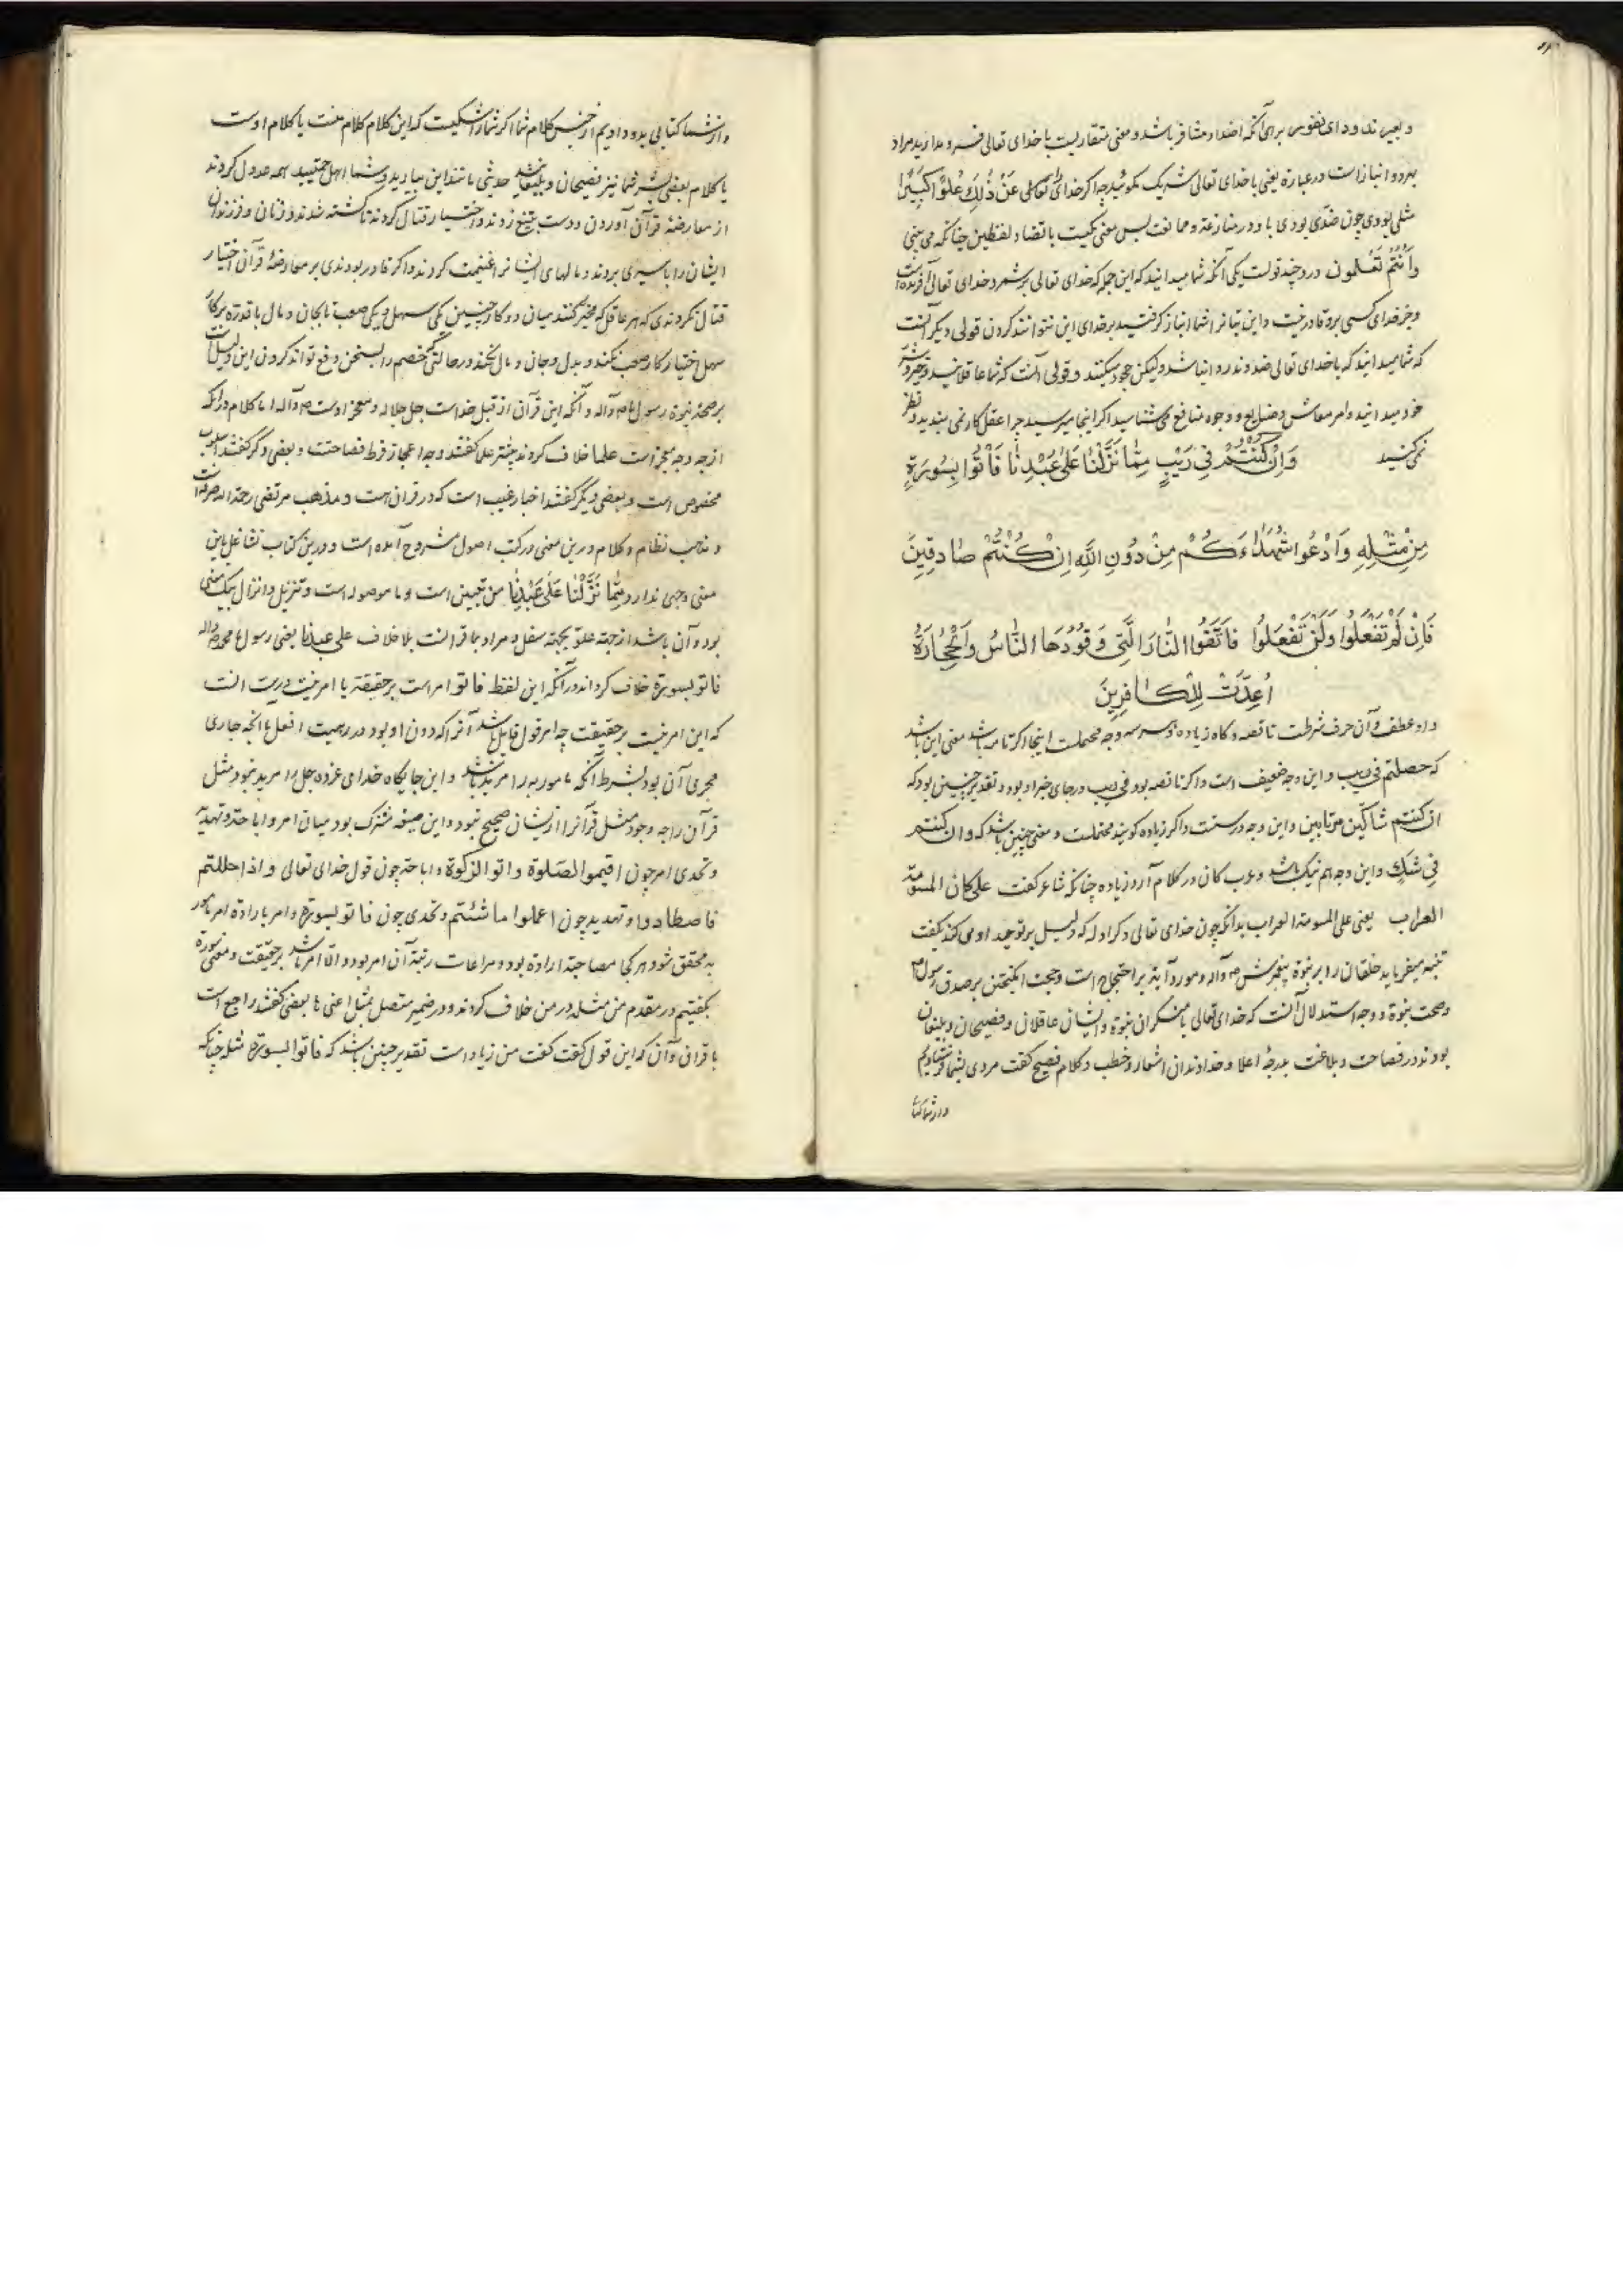 و بعیر ند ودای نفوس برای آنکه اضداد متنافر باشد و معنی متقاربست با خدای تعالی ضد و ندارید مراد
بهردو انبازاست در عبارة یعنی با خدای تعالی شریک مگوئید چه اگر خدای تعالی عَنْ ذٰلِكَ عُلُوًّا كَبِيرًا
مثلی بودی چون ضدّی بودی با او در منازعة و ممانعت پس معنی یکیست با تضاد لفظین چنانکه می بینی
وَاَنْتُمْ تَعْلَمُون درو چند قولست یکی آنکه شما میدانید که این جمله که خدای تعالی بر شمرد خدای تعالی آفریده است
وجز خدای کسی برو قادر نیست و این بتانرا شما انباز گرفتید بر خدای این نتوانند کردن قولی دیگر آنست
که شما میدانید که با خدای تعالی ضد و ند روا نباشد ولیکن جحود میکنید و قولی آنست که شما عاقلانید و خیر و شر
خود میدانید و امر معاش و وجوه منافع می شناسید اگر اینجا میرسید چرا عقل کار نمی بندید و نظر
نمی کنید وَاِنْ كُنْتُمْ فِي رَيْبٍ مِمّٰا نَزَّلْنٰا عَلىٰ عَبْدِنٰا فَاْتُوا بِسُورَةٍ
مِنْ مِثْلِهِ وَادْعُوا شُهَدٰاءَكُمْ مِنْ دُونِ اللّٰهِ اِنْ كُنْتُمْ صٰادِقِينَ
فَاِنْ لَمْ تَفْعَلُوا وَلَنْ تَفْعَلُوا فَاتَّقُوا النّٰارَ الَّتِي وَقُودُهَا النّٰاسُ وَالْحِجٰارَةُ
اُعِدَّتْ لِلْكٰافِرِينَ
واو عطف و آن حرف شرطست ناقصه و گاه زیاده و هر سه وجه محتملست اینجا اگر تامه باشد معنی این باشد
که حصلتم فی ریب و این وجه ضعیف است و اگر ناقصه بود فی ریب در جای خبر او بود و تقدیر چنین بود که
ان کنتم شاکین مرتابین و این وجه درستست و اگر زیاده گویند محتملست و معنی چنین باشد که و ان کنتم
فی شك و این وجه هم نیک باشد و عرب کان در کلام آرد زیاده چنانکه شاعر گفت علی کان المسومة
العراب یعنی علی المسومة العراب بدانکه چون خدای تعالی ذکر ادله که دلیل بر توحید او می کند بگفت
تنبیه میفرماید خلقان را بر نبوة پیغمبرش ص و آله و مورد آیة بر احتجاج است و حجت انگیختن بر صدق رسول ص
و صحت نبوة و وجه استدلال آنست که خدای تعالی با منکران نبوة و ایشان عاقلان و فصیحان و بلیغان
بودند در فصاحت و بلاغت بدرجۀ اعلا و خداوندان اشعار و خطب و کلام فصیح گفت مردی بشما فرستادیم
و از شما کتا
و از شما کتابی بدو دادیم از جنس کلام شما اگر شما را شکیست که این کلام کلام منست یا کلام اوست
یا کلام بعضی بشر شما نیز فصیحان و بلیغانید حدیثی مانند این بیارید و شما اهل حمیتید همه عدول کردند
از معارضۀ قرآن آوردن و دست بتیغ زدند و اختیار قتال کردند تا کشته شدند و زنان و فرزندان
ایشان را باسیری بردند و مالهای ایشانرا غنیمت کردند و اگر قادر بودندی بر معارضۀ قرآن اختیار
قتال نکردندی که هر عاقل که مخیر کنند میان دو کار چنین یکی سهل و یکی صعب تا بجان و مال با قدرة بر کار
سهل اختیار کار صعب نکند و بذل و جان و مال نکند در حالتی که خصم را بسخن دفع تواند کردن این دلیل است
بر صحة نبوة رسول ص و آله و آنکه این قرآن از قبل خداست جل جلاله و معجز اوست ص و آله اما کلام در آنکه
از چه وجه معجز است علما خلاف کردند بیشتر علما گفتند وجه اعجاز فرط فصاحتست و بعضی دگر گفتند اسلوب
مخصوص است و بعضی دیگر گفتند اخبار غیب است که در قرآن است و مذهب مرتضی رحمة الله صرفه است
و مذهب نظام و کلام درین معنی در کتب اصول مشروح آمده است و درین کتاب تشاغل باین
معنی وجهی ندارد مِمّٰا نَزَّلْنٰا عَلىٰ عَبْدِنٰا من تبیین است و ما موصوله است و تنزیل و انزال بیک معنی
بود و آن باشد از جهة علو بجهة سفل و مراد بما قرآنست بلا خلاف علی عبدنا یعنی رسول ما محمد ص و آله
فاتو بسورة خلاف کرده اند در آنکه این لفظ فاتوا امر است بر حقیقة یا امر نیست درست آنست
که این امر نیست بر حقیقت چه امر قول قایل باشد آنرا که دون او بود در رتبت افعل یا آنچه جاری
مجری آن بود بشرط آنکه مامور به را مرید باشد و این جایگاه خدای عزوجل مرید نبود مثل
قرآن را چه وجود مثل قرآنرا از ایشان صحیح نبود و این صیغه مشترک بود میان امر و اباحة و تهدید
و تحدی امر چون اقیموا الصلوة واتوا الزکوة و اباحة چون قول خدای تعالی و اذا حللتم
فاصطادوا و تهدید چون اعملوا ما شئتم و تحدی چون فاتو بسورة و امر بارادة امر مامور
به محقق شود هر کجا مصاحبة ارادة بود و مراعات رتبة آن امر بود و الا امر نباشد بر حقیقت و معنی سورة
بگفتیم در مقدم من مثله در من خلاف کردند و در ضمیر متصل بمثل اعنی ها بعضی گفتند راجع است
با قرآن و آن که این قول گفت گفت من زیاد است تقدیر چنین باشد که فاتوا بسورة مثله چنانکه